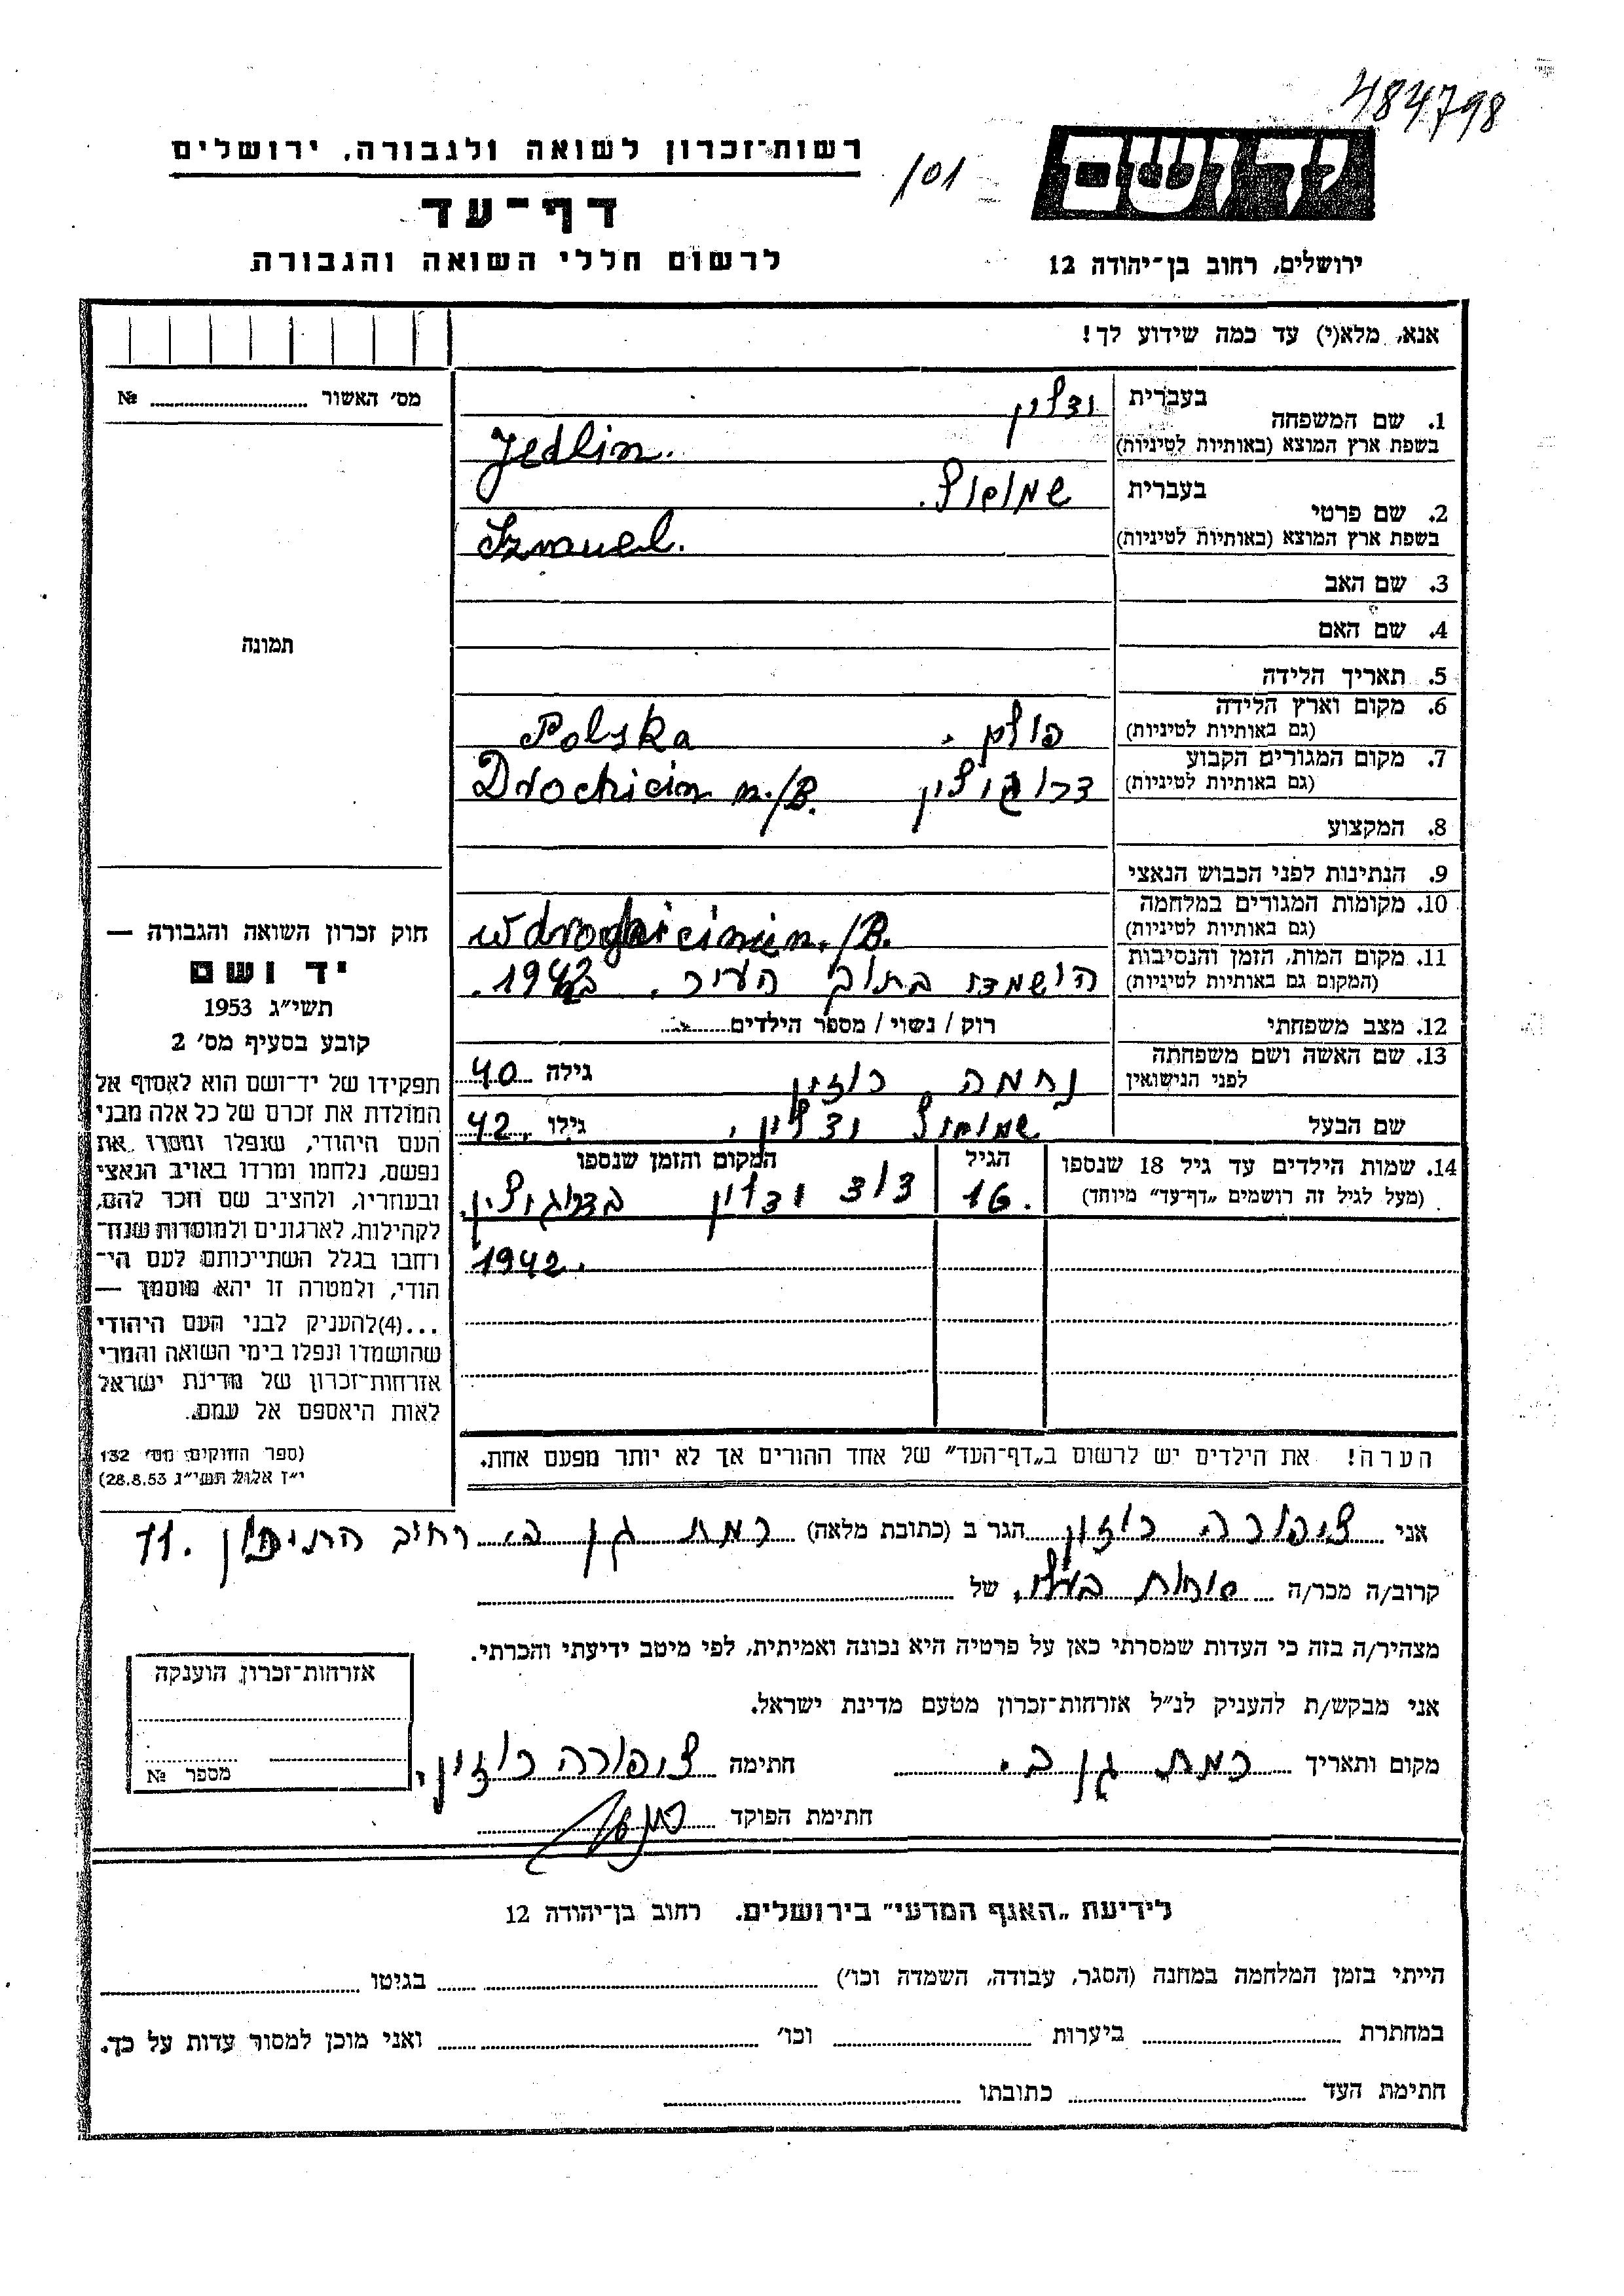 484798
רשות־זכרון לשואה ולגבורה, ירושלים
101
ידושם
דף־עד
לרשום חללי השואה והגבורה
ירושלים, רחוב בן־יהודה 12
אנא, מלא(י) עד כמה שידוע לך!
מס׳ האשור № 
1. שם המשפחה
בעברית ידלין
בשפת ארץ המוצא (באותיות לטיניות) Jedlin.
2. שם פרטי
בעברית שמואל.
בשפת ארץ המוצא (באותיות לטיניות) Szmuel.
3. שם האב
4. שם האם
תמונה
5. תאריך הלידה
6. מקום וארץ הלידה
(גם באותיות לטיניות) פולין. Polska
7. מקום המגורים הקבוע
(גם באותיות לטיניות) דרוגיצין Drochicin n./B.
8. המקצוע
9. הנתינות לפני הכבוש הנאצי
10. מקומות המגורים במלחמה
(גם באותיות לטיניות) n./B.
11. מקום המות, הזמן והנסיבות
(המקום גם באותיות לטיניות) הושמדו בתוך העיר. 1942.
12. מצב משפחתי רוק / נשוי / מספר הילדים
13. שם האשה ושם משפחתה
לפני הנישואין נחמה רוזין גילה 40
שם הבעל שמואל ידלין, גילו 42
14. שמות הילדים עד גיל 18 שנספו
(מעל לגיל זה רושמים „דף־עד״ מיוחד)
הגיל
המקום והזמן שנספו
16. דוד ידלין בדרוגיצין,
1942.
הערה! את הילדים יש לרשום ב„דף־העד״ של אחד ההורים אך לא יותר מפעם אחת.
חוק זכרון השואה והגבורה —
יד ושם
תשי״ג 1953
קובע בסעיף מס׳ 2
תפקידו של יד־ושם הוא לאסוף אל
המולדת את זכרם של כל אלה מבני
העם היהודי, שנפלו ומסרו את
נפשם, נלחמו ומרדו באויב הנאצי
ובעוזריו, ולהציב שם וזכר להם,
לקהילות, לארגונים ולמוסדות שנח־
רחבו בגלל השתייכותם לעם הי־
הודי, ולמטרה זו יהא מוסמך —
...(4)להעניק לבני העם היהודי
שהושמדו ונפלו בימי השואה והמרי
אזרחות־זכרון של מדינת ישראל
לאות היאספם אל עמם.
(ספר החוקים מס׳ 132
י״ז אלול תשי״ג 28.8.53)
אני ציפורה רוזין הגר ב (כתובת מלאה) רמת גן ב. רחוב 11.
קרוב/ה מכר/ה של
מצהיר/ה בזה כי העדות שמסרתי כאן על פרטיה היא נכונה ואמיתית, לפי מיטב ידיעתי והכרתי.
אני מבקש/ת להעניק לנ״ל אזרחות־זכרון מטעם מדינת ישראל.
מקום ותאריך רמת גן ב. חתימה ציפורה רוזין,
חתימת הפוקד
אזרחות־זכרון הוענקה
מספר №
לידיעת „האגף המדעי״ בירושלים, רחוב בן־יהודה 12
הייתי בזמן המלחמה במחנה (הסגר, עבודה, השמדה וכו׳) בגיטו
במחתרת ביערות וכו׳ ואני מוכן למסור עדות על כך.
חתימת העד כתובתו